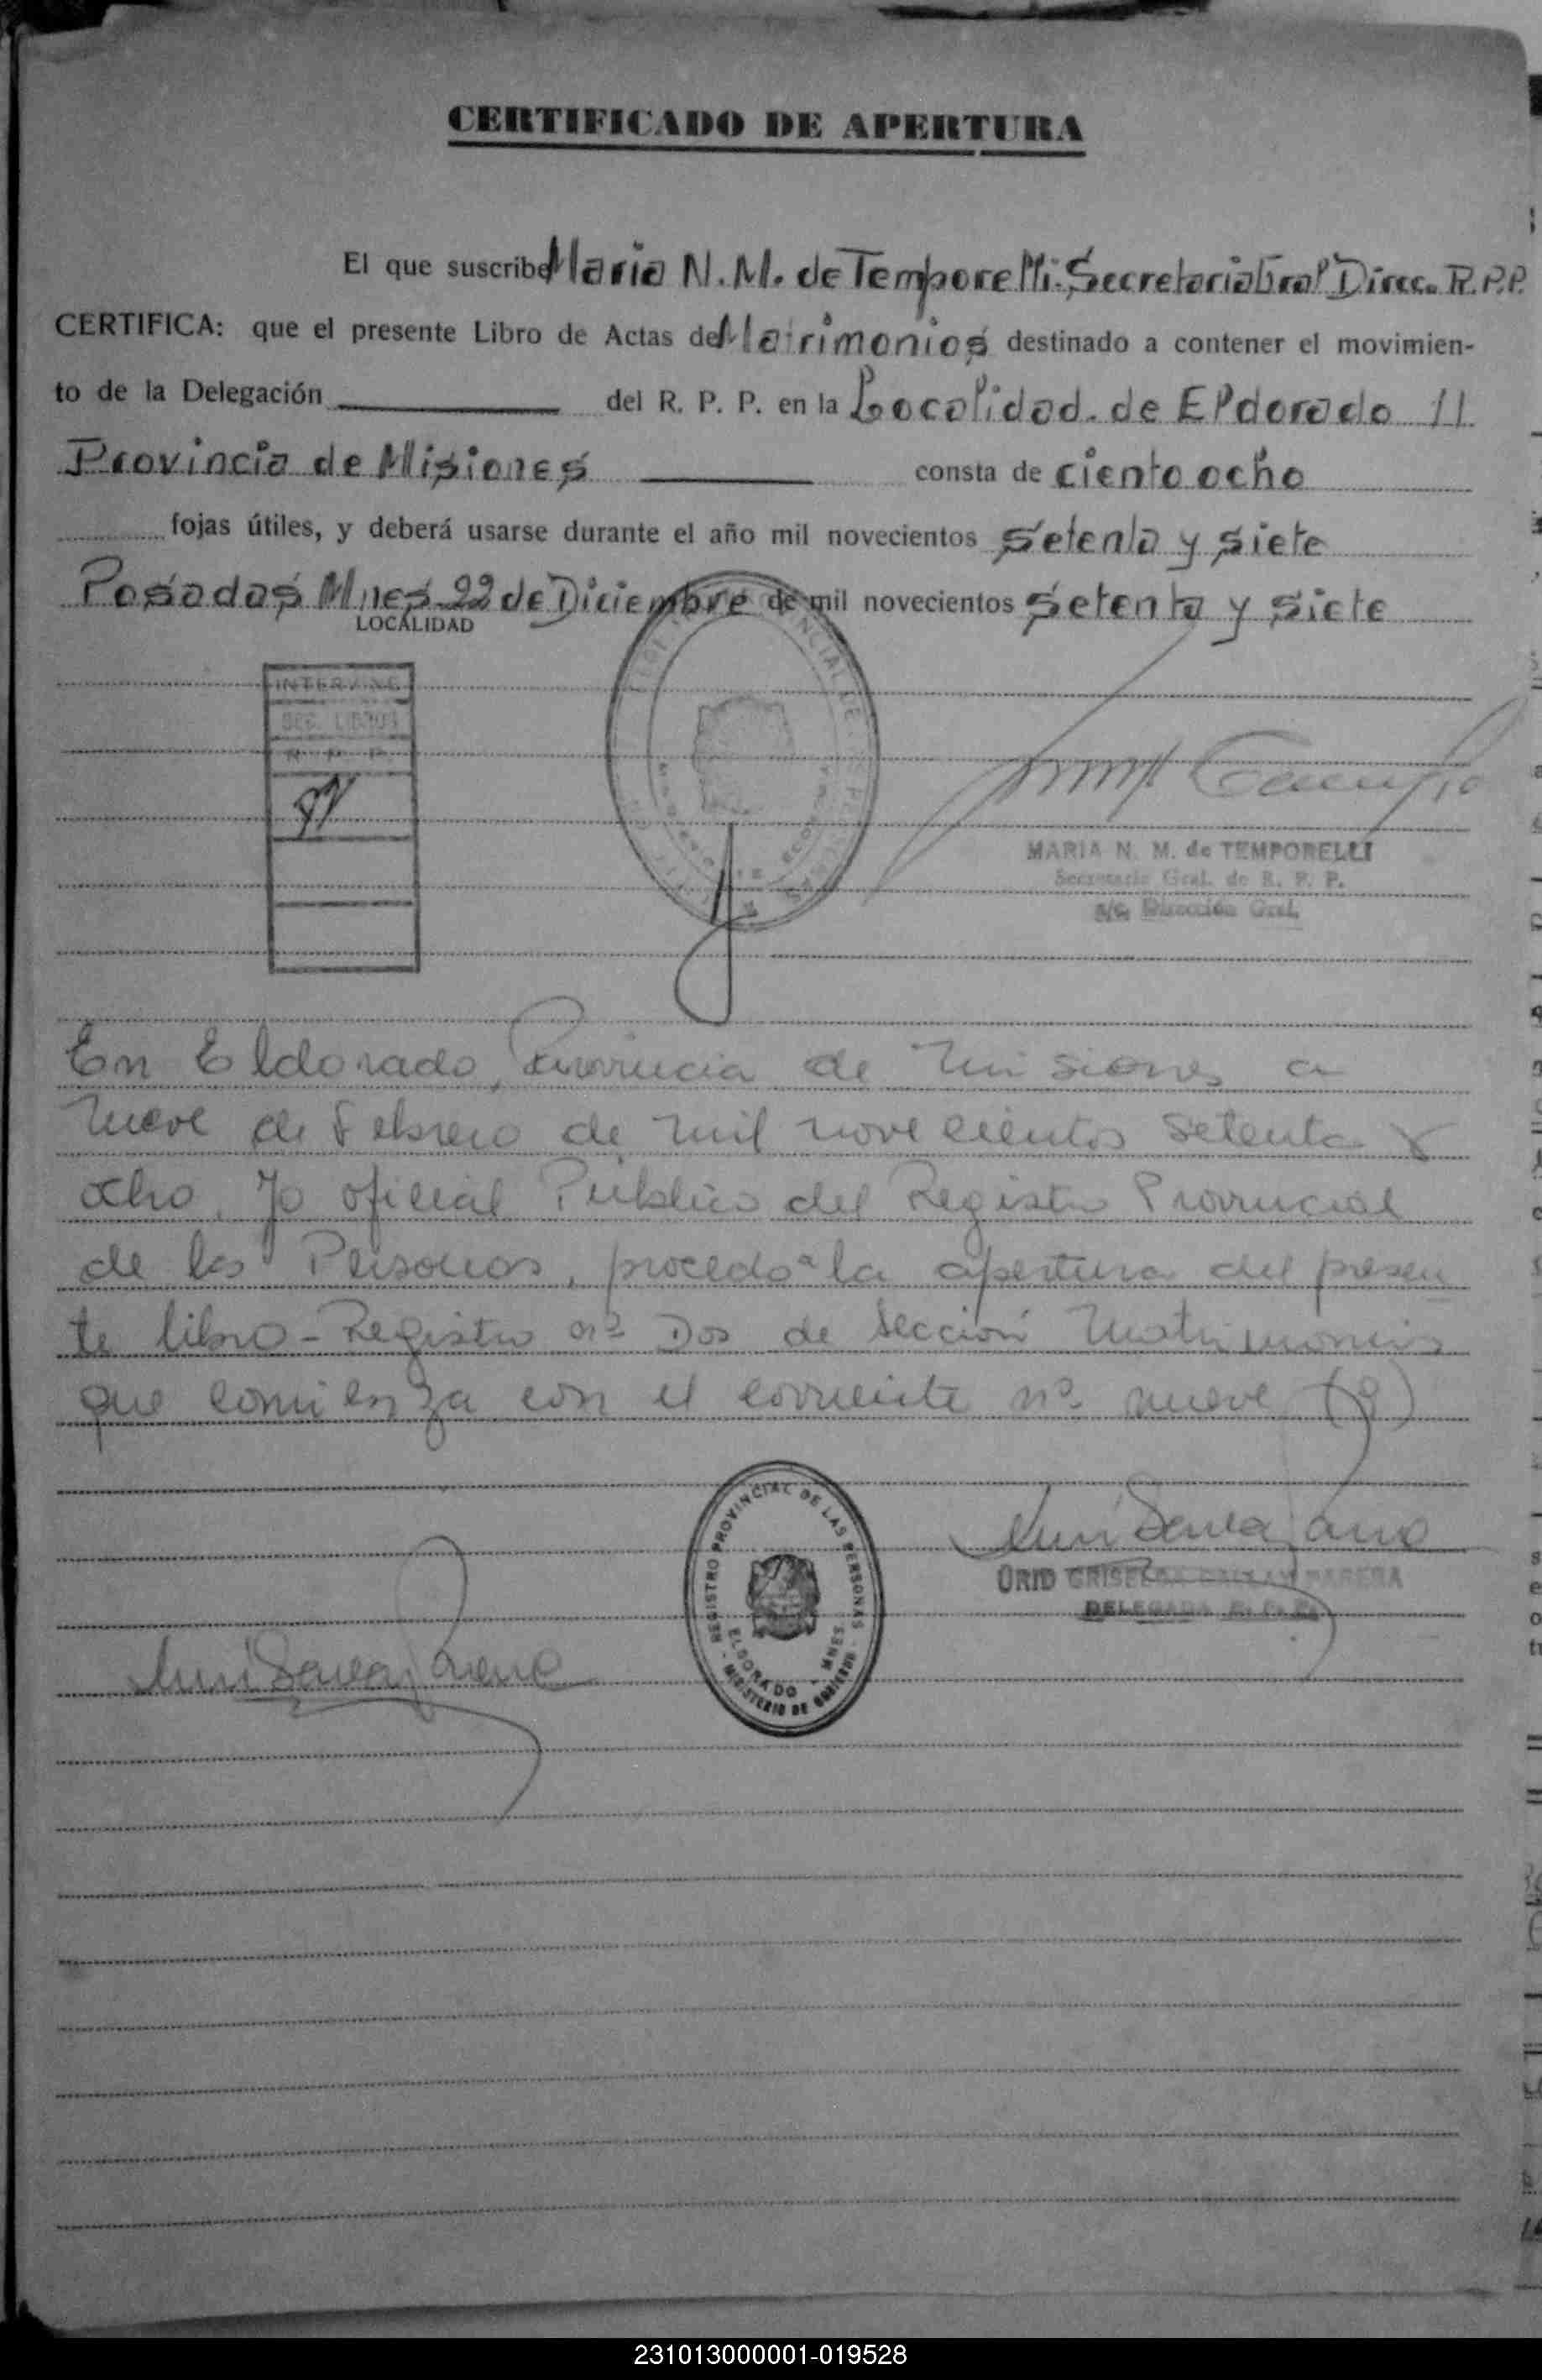 CERTIFICADO DE APERTURA
El que suscribe Maria N. M. de Temporelli. Secretaria Gral Direc. R.P.P.
CERTIFICA: que el presente Libro de Actas de Matrimonios destinado a contener el movimien-
to de la Delegación del R. P. P. en la Localidad de Eldorado 11
Provincia de Misiones consta de ciento ocho
fojas útiles, y deberá usarse durante el año mil novecientos setenta y siete
Posadas Mnes 22 de Diciembre de mil novecientos setenta y siete
LOCALIDAD
INTERVINO
SEC. LIBROS
R. P. P.
MARIA N. M. de TEMPORELLI
Secretaria Gral. de R. P. P.
a/c Dirección Gral.
En Eldorado, Provincia de Misiones a
nueve de Febrero de mil novecientos setenta y
ocho, Yo oficial Público del Registro Provincial
de las Personas, procedo a la apertura del presen
te libro - Registro nº Dos de Sección Matrimonios
que comienza con el corriente nº nueve (9)
REGISTRO PROVINCIAL DE LAS PERSONAS
ELDORADO - MNES.
MINISTERIO DE GOBIERNO
DELEGADA R. P. P.
231013000001-019528